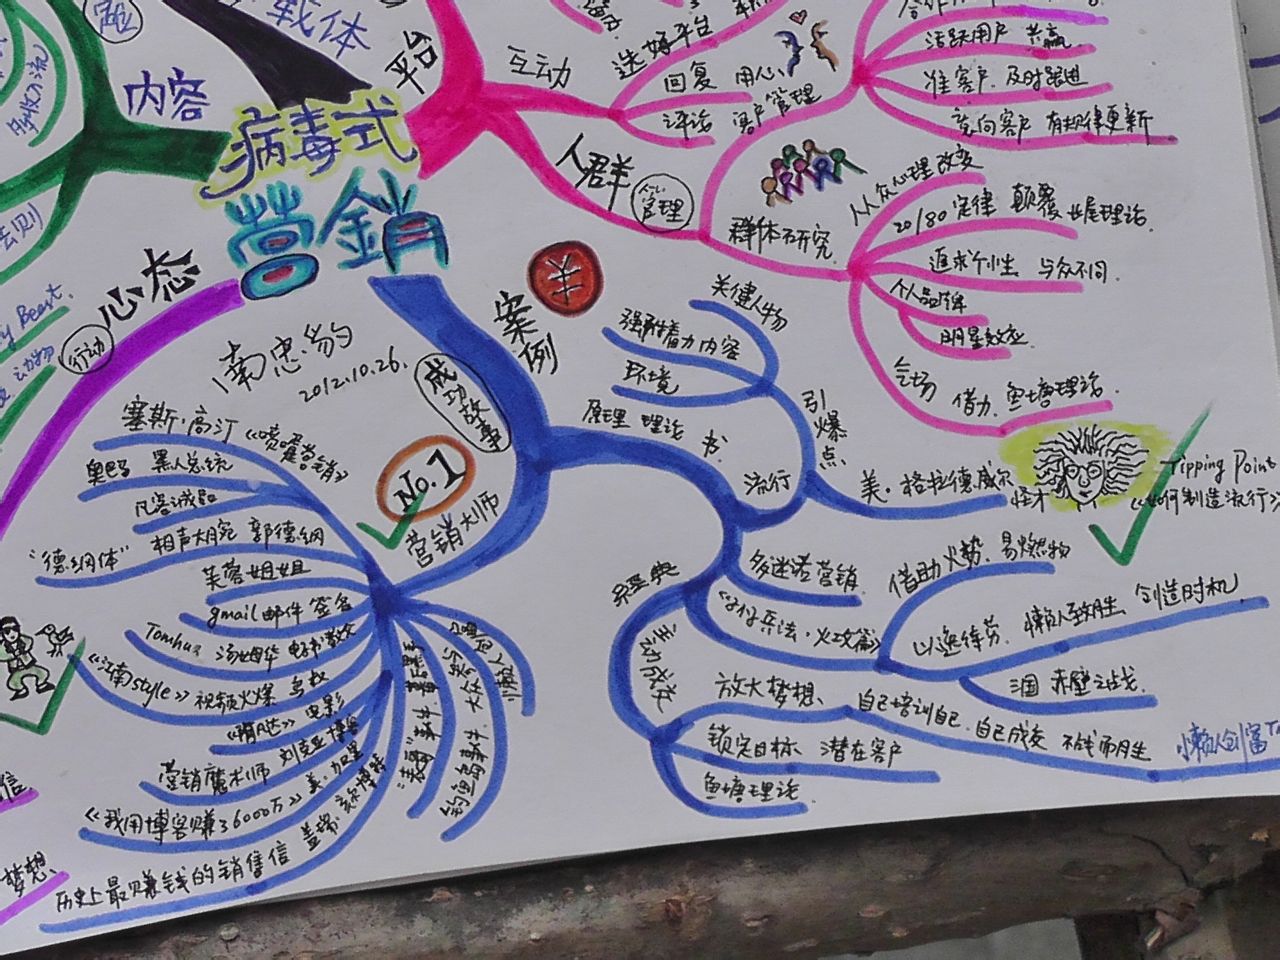 载体
平台
内容
病毒式
营銷
心态
行动
南忠豹
2012.10.26.
互动
选好平台
回复 用心
评论 客户管理
活跃用户 共赢
准客户 及时跟进
意向客户 有规律更新
人群
管理
群体研究
从众心理 改变
20/80定律 颠覆 长尾理论
追求个性 与众不同
个人品牌
明星效应
借力 鱼塘理论
案例
成功故事
No.1
营销大师
塞斯·高汀 《喷嚏营销》
奥巴马 黑人总统
凡客诚品
"德纲体" 相声大腕 郭德纲
芙蓉姐姐
gmail 邮件 签名
《江南style》 视频火爆 鸟叔
电影
营销魔术师 刘克亚 博客
《我用博客赚了6000万》 美·加里
历史上最赚钱的销售信 盖瑞·亥尔博特
钓鱼岛事件
原理 理论 书
流行
引爆点
关健人物
环境
美·格拉德威尔
怪才
Tipping Point
《如何制造流行》
《孙子兵法·火攻篇》
借助火势 易燃物
以逸待劳 懒人致胜 创造时机
三国 赤壁之战
主动成交
放大梦想 自己培训自己 自己成交 不战而胜
锁定目标 潜在客户
鱼塘理论
懒人创富
梦想